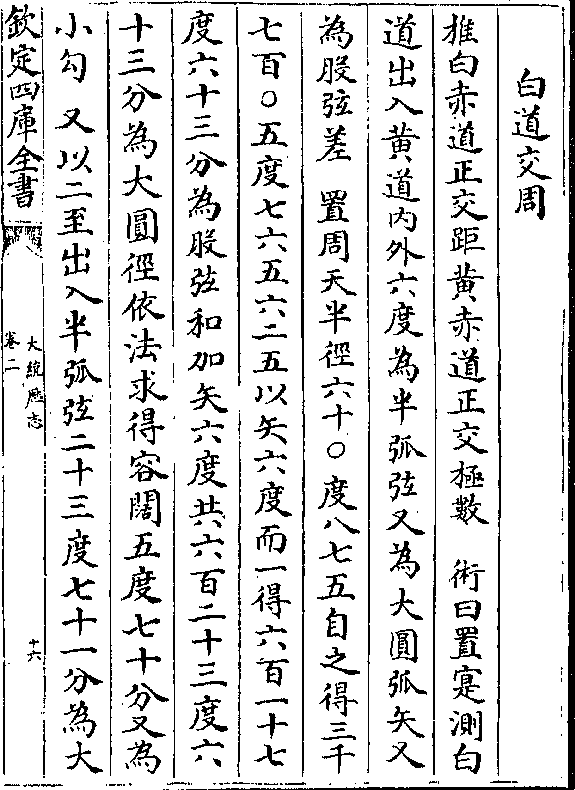 白道交周
推白赤道正交距黃赤道正交極數　術曰置寔測白
道出入黃道内外六度為半弧弦又為大圓弧矢又
為股弦差　置周天半徑六十〇度八七五自之得三千
七百〇五度七六五六二五以矢六度而一得六百一十七
度六十三分為股弦和加矢六度共六百二十三度六
十三分為大圓徑依法求得容闊五度七十分又為
小勾　又以二至出入半弧弦二十三度七十一分為大
欽定四庫全書
大統厯志
卷二
十六